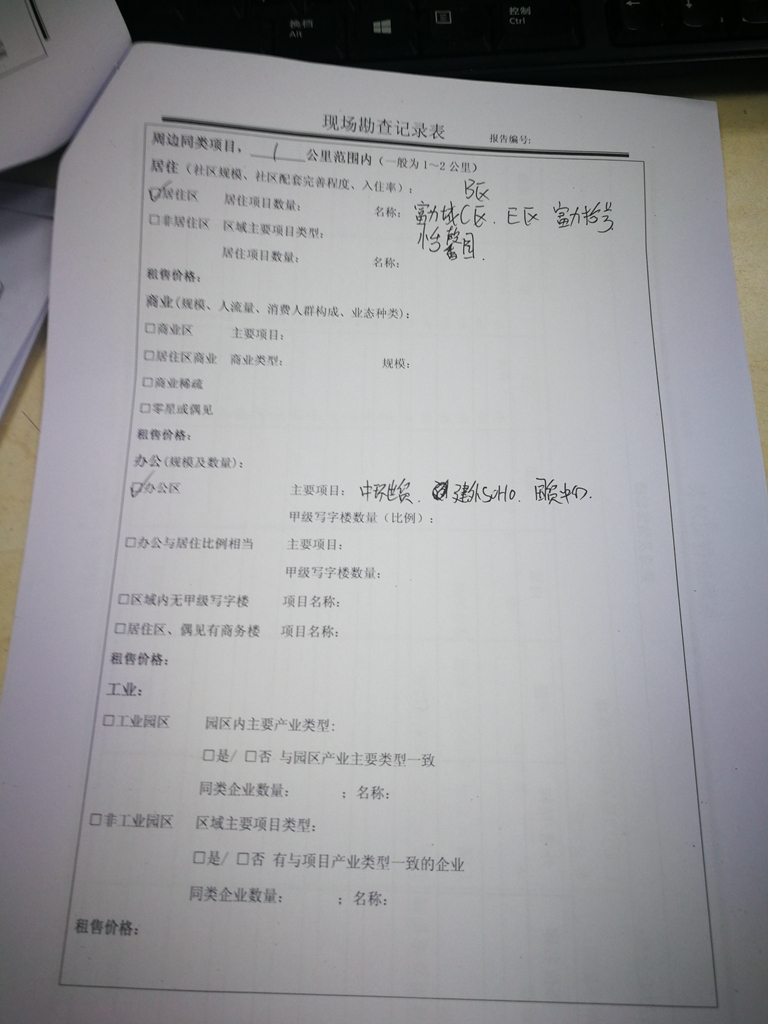 换档
Alt
控制
Ctrl
现场勘查记录表 报告编号:
周边同类项目, 1 公里范围内(一般为1~2公里)
居住(社区规模、社区配套完善程度、入住率):
B区
☑居住区 居住项目数量: 名称: 富力城C区、E区 富力
□非居住区 区域主要项目类型:
居住项目数量: 名称:
租售价格:
商业(规模、人流量、消费人群构成、业态种类):
□商业区 主要项目:
□居住区商业 商业类型: 规模:
□商业稀疏
□零星或偶见
租售价格:
办公(规模及数量):
☑办公区 主要项目: 中环世贸、建外SOHO、国贸中心.
甲级写字楼数量(比例):
□办公与居住比例相当 主要项目:
甲级写字楼数量:
□区域内无甲级写字楼 项目名称:
□居住区、偶见有商务楼 项目名称:
租售价格:
工业:
□工业园区 园区内主要产业类型:
□是/ □否 与园区产业主要类型一致
同类企业数量: ;名称:
□非工业园区 区域主要项目类型:
□是/ □否 有与项目产业类型一致的企业
同类企业数量: ;名称:
租售价格: